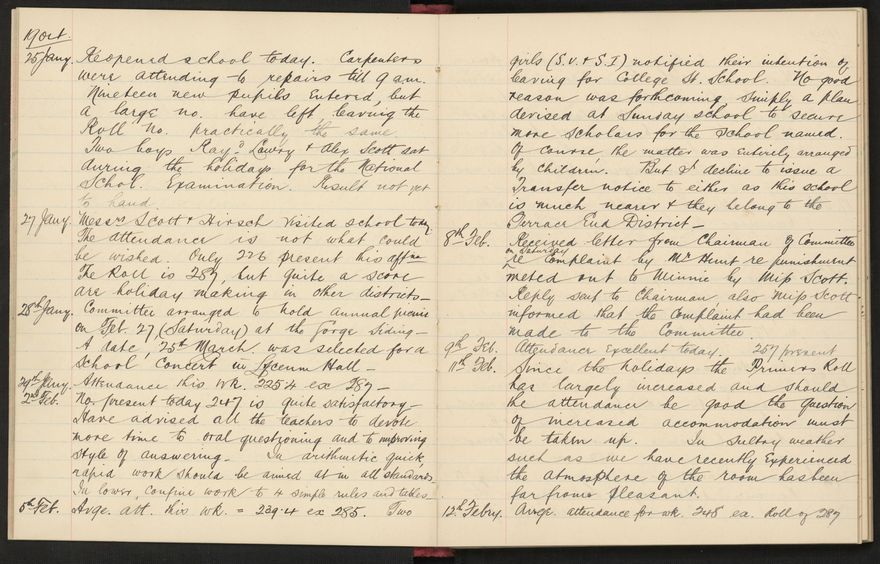 25 Jany. Reopened school today. Carpenters
were attending to repairs till 9 am.
Nineteen new pupils entered, but
a large no. have left leaving the
Roll No. practically the same.
Two boys Rayd. Lowry & Alex Scott sat
during the holidays for the National
Schol. Examination. Result not yet
to hand.
27 Jany. Messrs Scott & Hirsch visited school today.
The attendance is not what could
be wished. Only 226 present this aftne
The Roll is 287, but quite a score
are holiday making in other districts _
28th Jany. Committee arranged to hold annual picnic
on Feb. 27 (Saturday) at the Gorge Siding _
A date, 25th March was selected for a
School Concert in Lyceum Hall _
29th Jany. Attendance this wk. 225.4 ex 287 _
2nd Feb. No. present today 247 is quite satisfactory _
Have advised all the teachers to devote
more time to oral questioning and to improving
style of answering _ In arithmetic quick,
rapid work should be aimed at in all standards _
In lower, confine work to 4 simple rules and tables _
5th Feb. Avge. att. this wk. = 239.4 ex 285. Two
girls (S.V. & S.I) notified their intention of
leaving for College St. School. No good
reason was forthcoming, simply a plan
devised at Sunday school to secure
more scholars for the school named.
Of course, the matter was entirely arranged
by children. But I decline to issue a
Transfer notice to either as this school
is much nearer & they belong to the
Terrace End District _
8th Feb. Received letter from Chairman of Committee
on Saturday
re complaint by Mr Hunt re punishment
meted out to Minnie by Miss Scott.
Reply sent to Chairman, also Miss Scott
informed that the complaint had been
made to the Committee.
9th Feb. Attendance Excellent today. 257 present
11th Feb. Since the holidays the Primers Roll
has largely increased and should
the attendance be good the question
of increased accommodation must
be taken up. In sultry weather
such as we have recently experienced
the atmosphere of the room has been
far from pleasant.
12th Febry. Avge. attendance for wk. 248 ex. Roll of 287